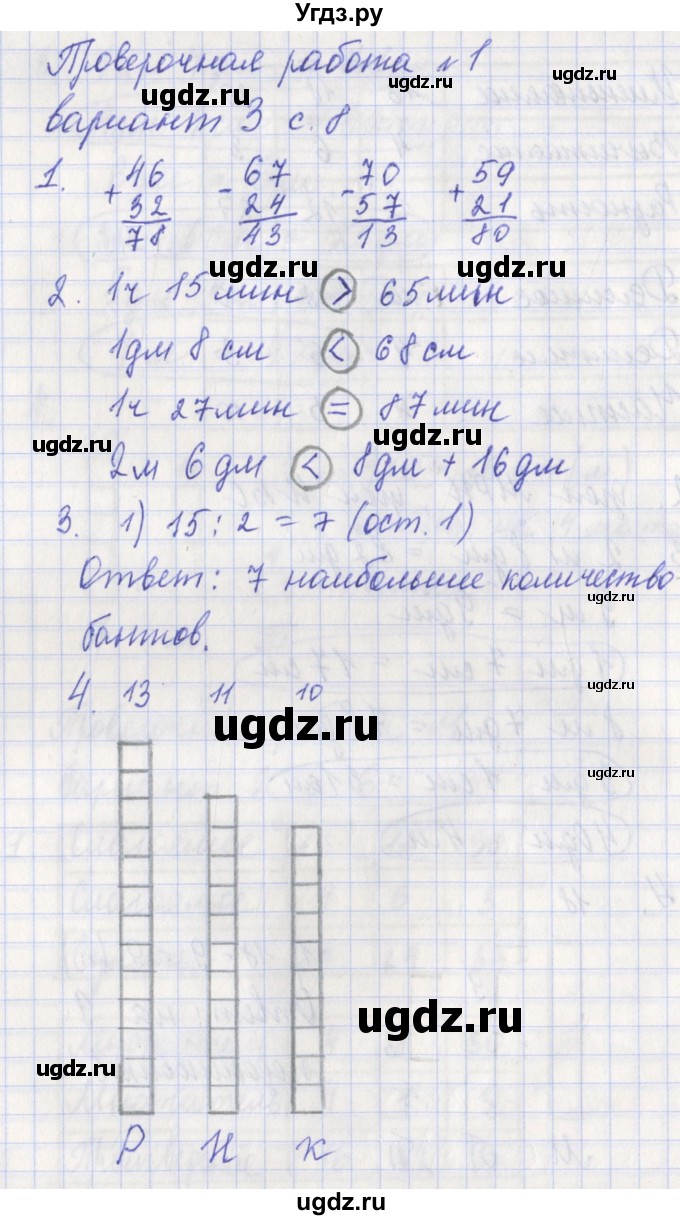 Угдз.ру
Проверочная работа №1
вариант 3 с. 8
1. + 46 - 67 - 70 + 59
32 24 57 21
78 43 13 80
2. 1ч 15 мин > 65 мин
1дм 8 см < 68 см
1ч 27 мин = 87 мин
2м 6 дм < 8дм + 16 дм
3. 1) 15 : 2 = 7 (ост. 1)
Ответ: 7 наибольшие количество
бантов.
4. 13 11 10
Р Н К
ugdz.ru
ugdz.ru
ugdz.ru
ugdz.ru
ugdz.ru
ugdz.ru
ugdz.ru
ugdz.ru
ugdz.ru
ugdz.ru
ugdz.ru
ugdz.ru
ugdz.ru
ugdz.ru